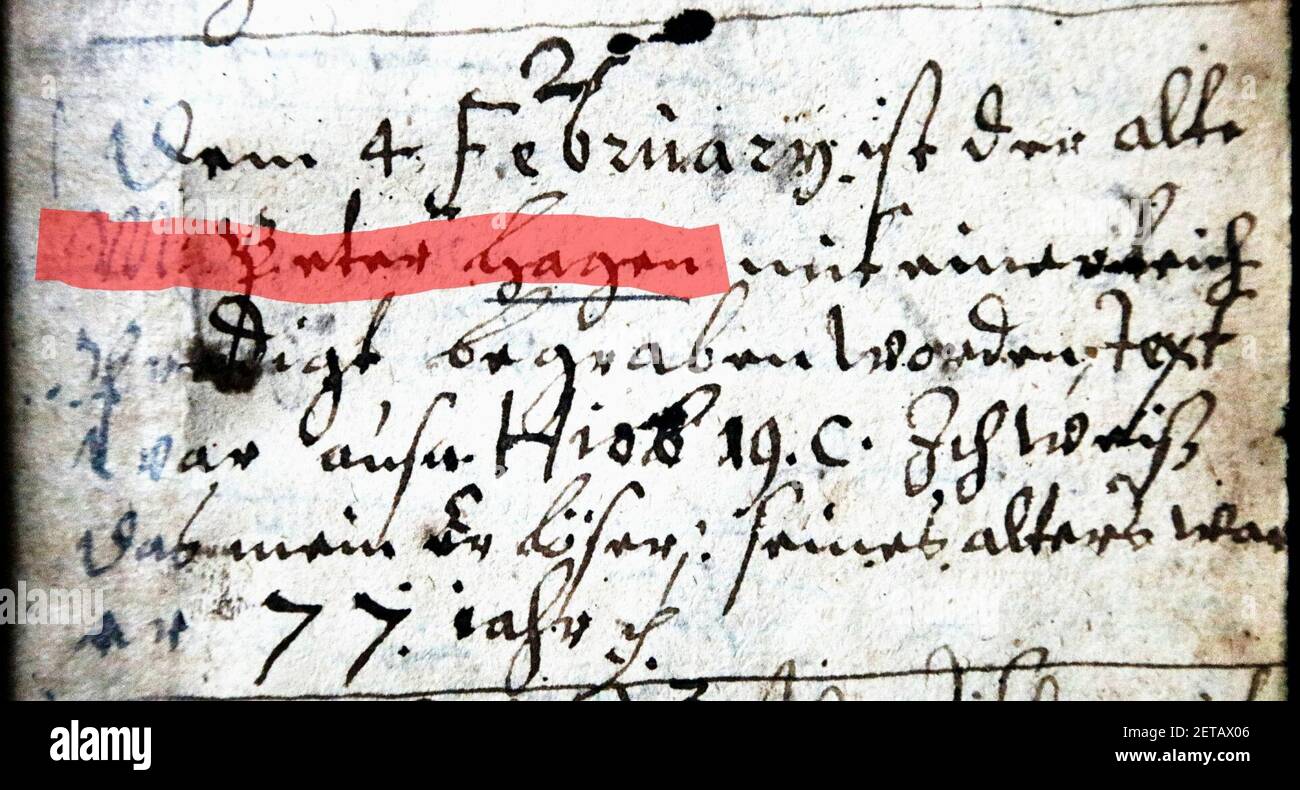 2
Dem 4 February ist der alte
M. Peter Hagen mit einer leich
Predigt begraben worden, Text
war aus Hiob 19. C. Ich weiß
das mein Erlöser: seines alters war
er 77. iahr
alamy
Image ID: 2ETAX06
www.alamy.com